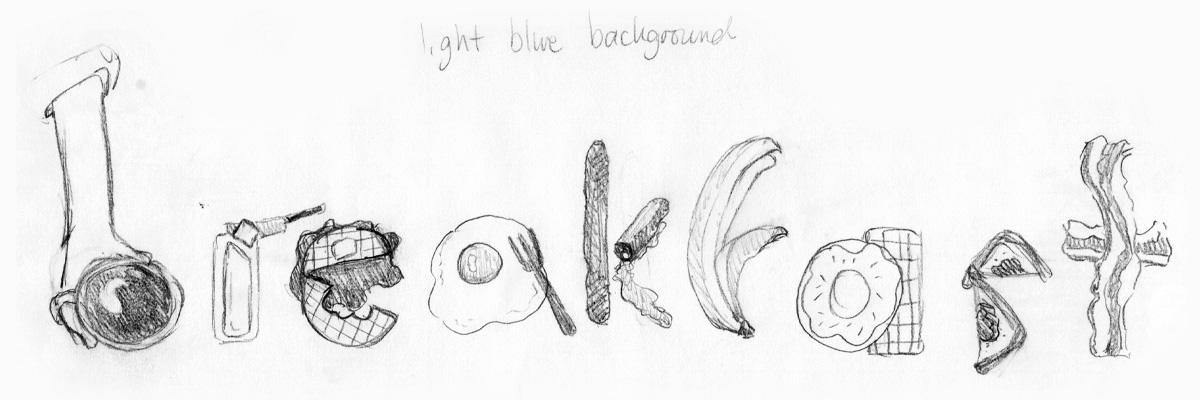 light blue background
breakfast